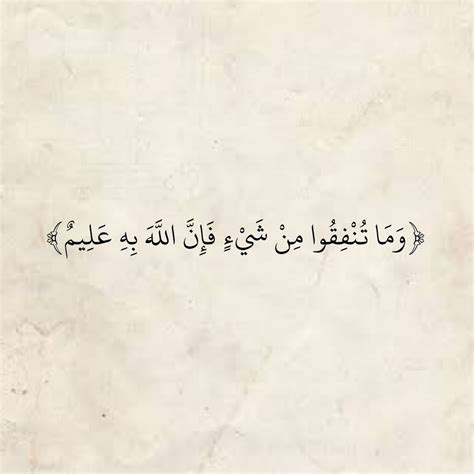 ﴿وَمَا تُنْفِقُوا مِنْ شَيْءٍ فَإِنَّ اللَّهَ بِهِ عَلِيمٌ﴾